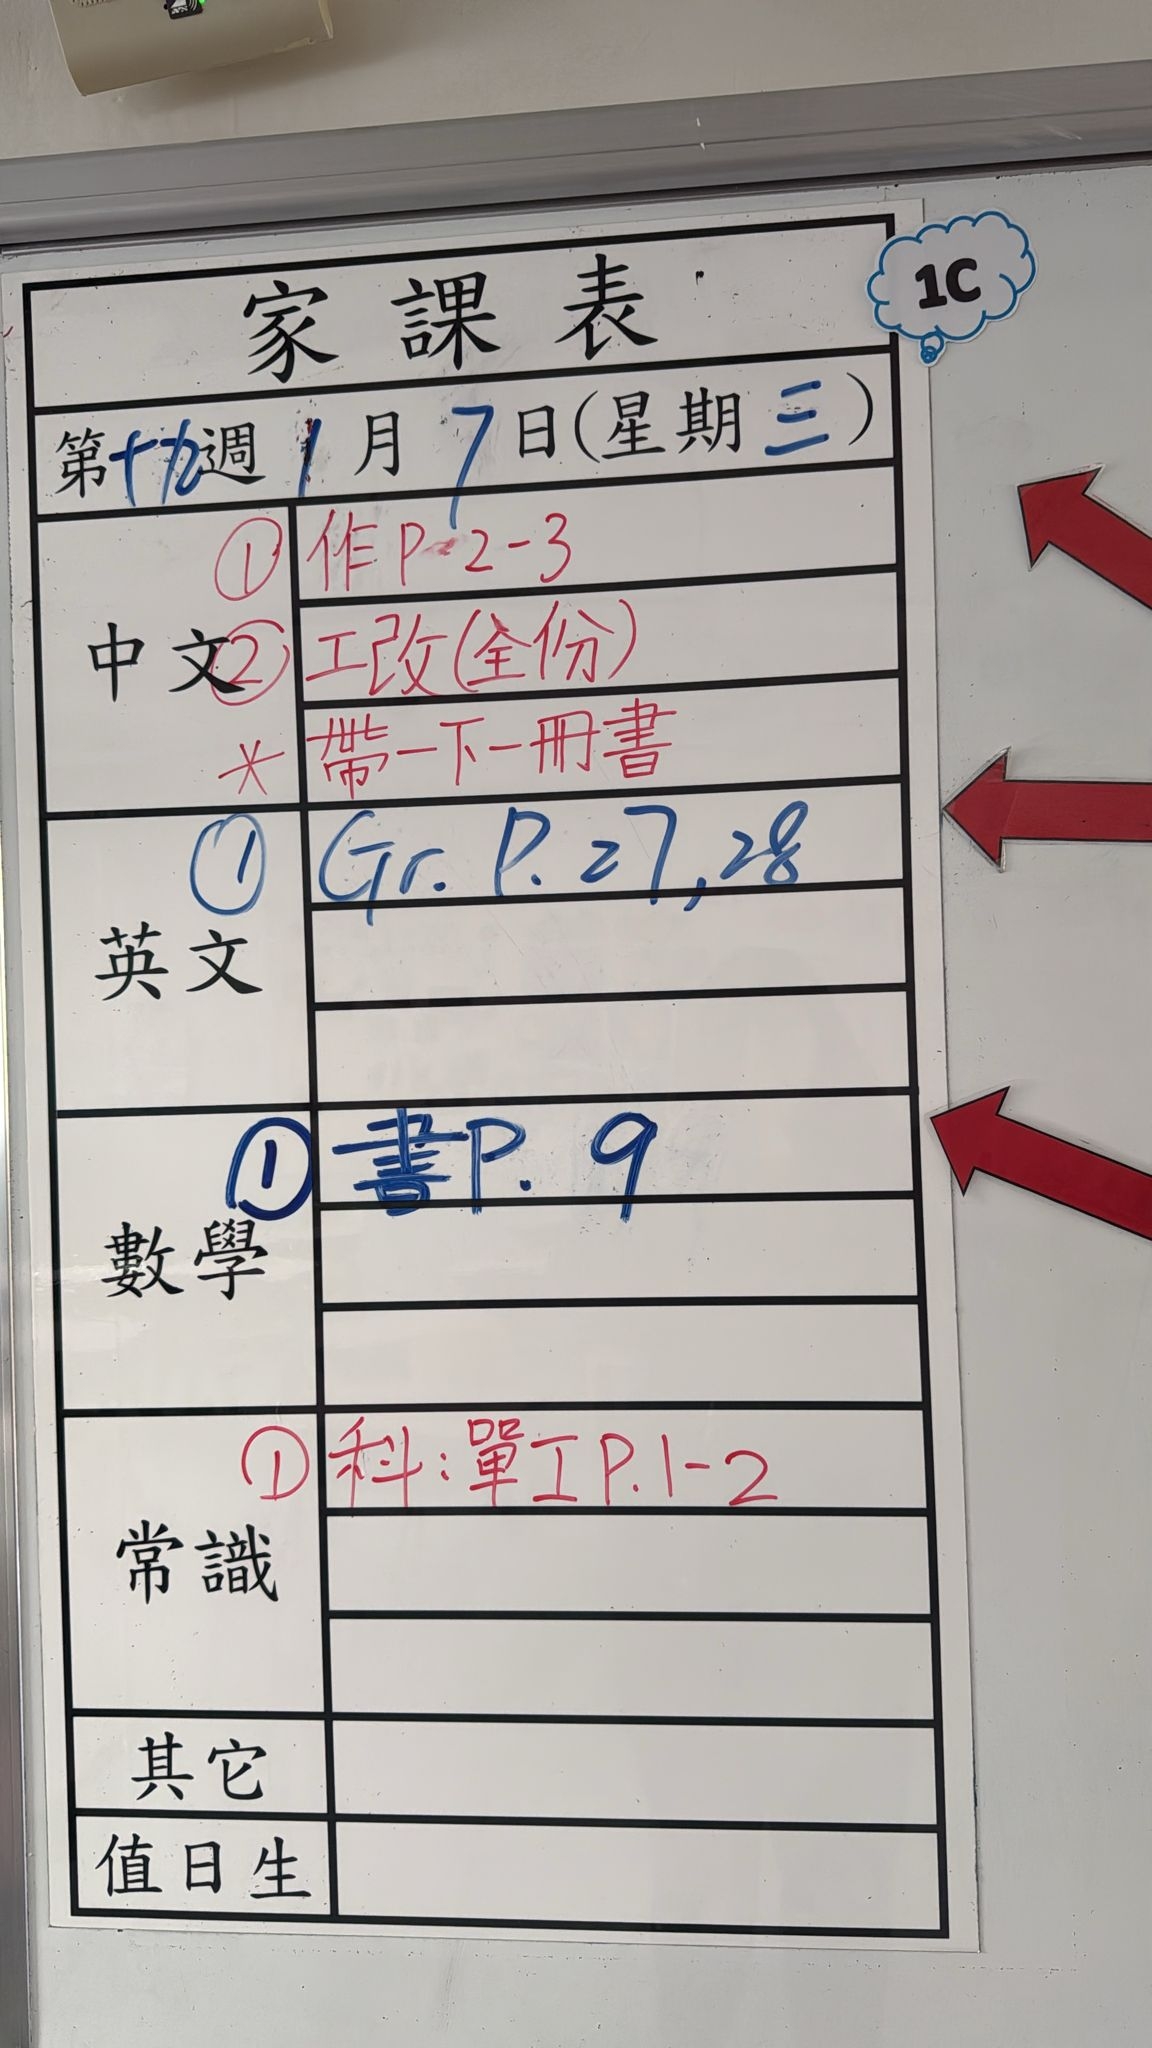 家課表
1C
第十九週 1月7日(星期三)
中文
① 作P.2-3
② 工改(全份)
* 帶一下一冊書
英文
① Gr. P. 27, 28
數學
① 書P. 9
常識
① 科:單工P.1-2
其它
值日生